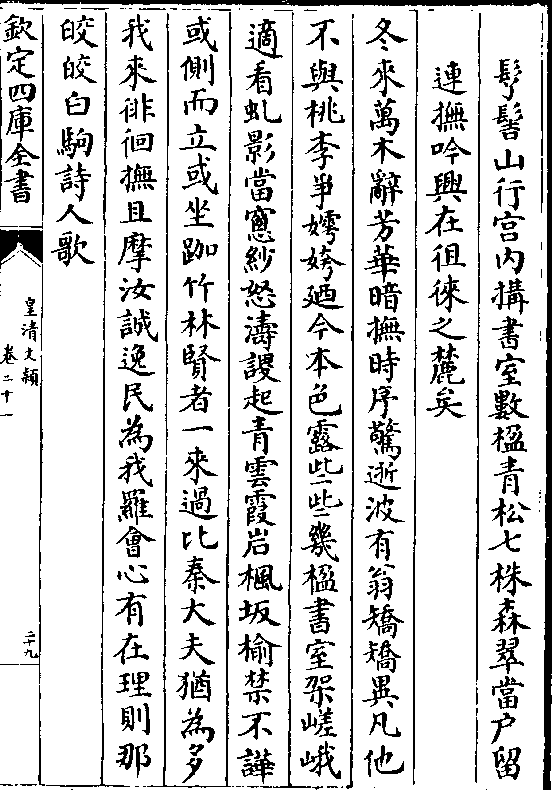 髣髻山行宫内搆書室數楹青松七株森翠當户留
連撫吟興在徂徠之麓矣
冬來萬木辭芳華暗撫時序驚逝波有翁矯矯異凡他
不與桃李爭嫮姱廼今本色露些些幾楹書室架嵯峨
適看虬影當窻紗怒濤謖起青雲霞岩楓坂榆禁不譁
或側而立或坐跏竹林賢者一來過比秦大夫猶為多
我來徘徊撫且摩汝誠逸民為我羅會心有在理則那
皎皎白駒詩人歌
欽定四庫全書
皇清文穎
卷二十一
二十九